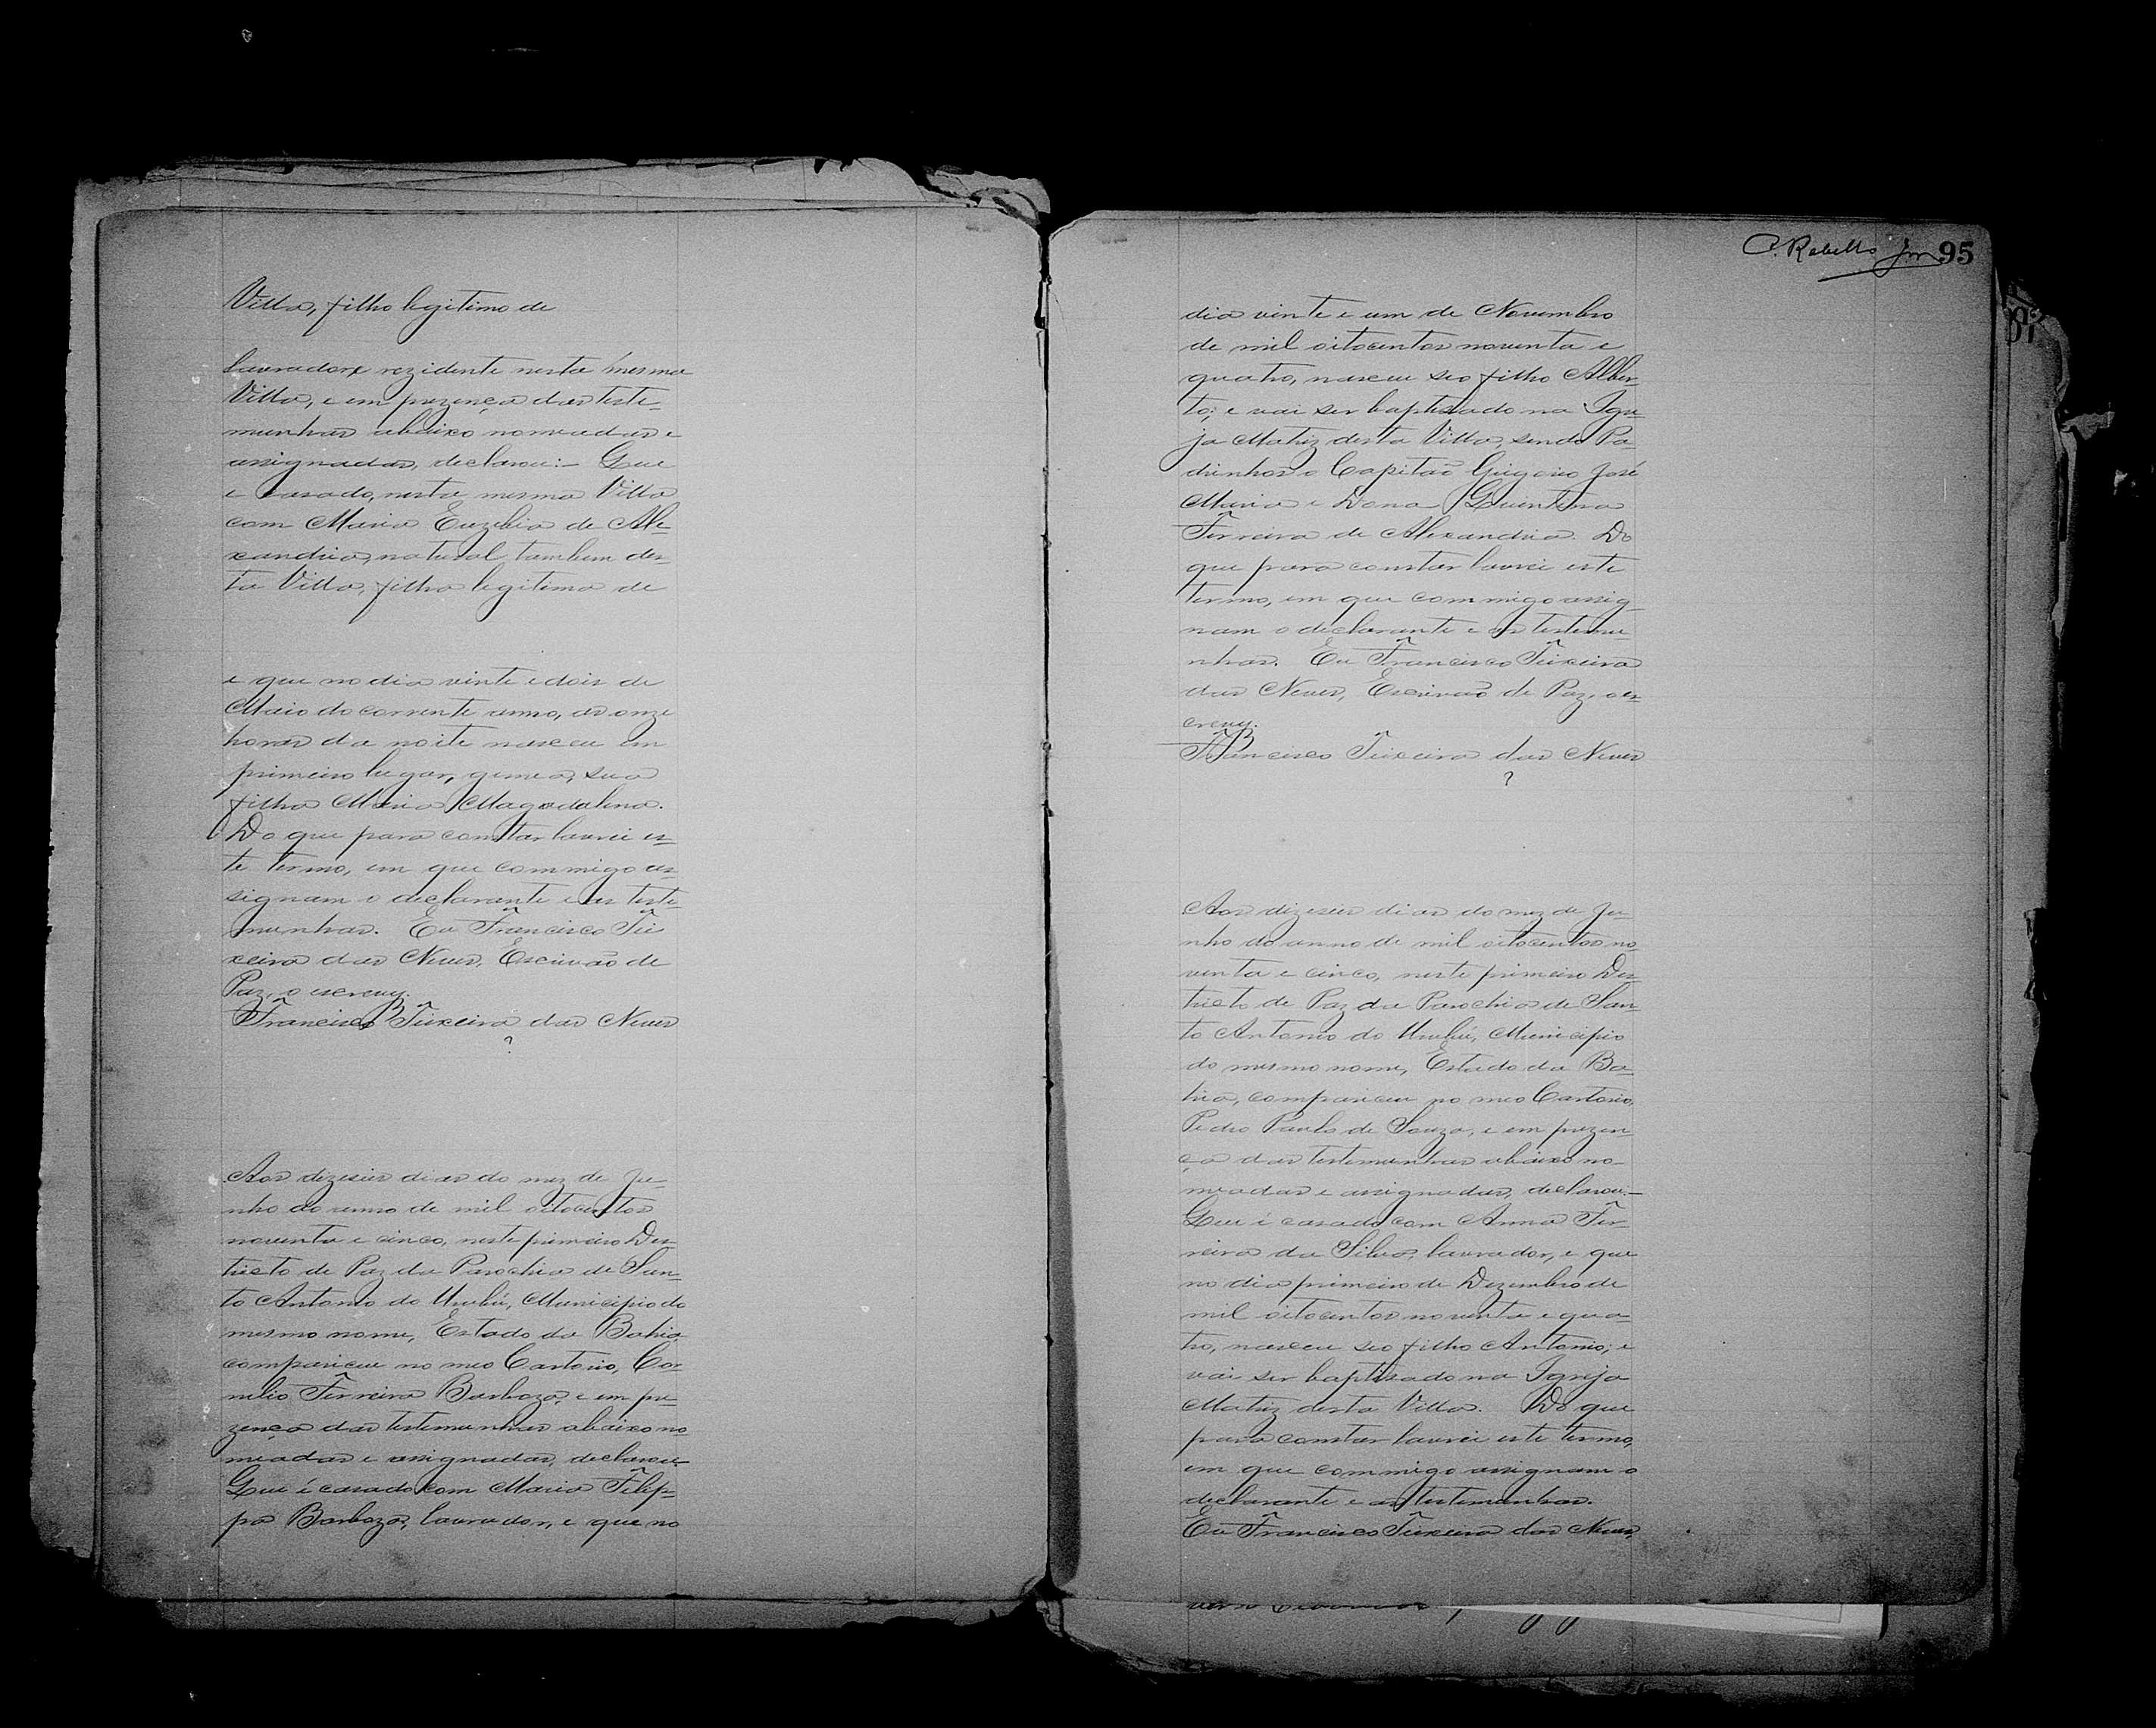 Villa, filho legitimo de
lavrador e rezidente nesta mesma
Villa, e em prezença das teste-
munhas abaixo nomeadas e
assignadas, declarou:- Que
é casado, nesta mesma Villa
com Maria Euzebia de Ale-
xandria, natural tambem des-
ta Villa, filha legitima de
e que no dia vinte e dois de
Maio do corrente anno, as onze
horas da noite nasceu em
primeiro lugar, gemea, sua
filha Maria Magadalena.
Do que para constar lavrei es-
te termo, em que commigo as-
signam o declarante e as teste-
munhas. Eu Francisco Tei
xeira das Neves, Escrivão de
Paz, o escrevy.
Francisco Teixeira das Neves
Aos dizeseis dias do mez de Ju-
nho do anno de mil oitocentos
noventa e cinco, neste primeiro Des-
tricto de Paz da Parochia de San-
to Antonio do Urubú, Municipio do
mesmo nome, Estado da Bahia,
compariceu no meo Cartorio, Cor-
nelio Ferreira Barboza, e em pre-
zença das testemunhas abaixo no
meadas e assignadas, declarou:-
Que é casado com Maria Felip-
pa Barboza, lavrador, e que no
C. Rabello Jor 95
dia vinte e um de Novembro
de mil oitocentos noventa e
quatro, nasceu seo filho Alber-
to; e vai ser baptisado na Igre-
ja Matriz desta Villa, sendo Pa-
drinhos o Capitaõ Grigorio José
Maria e Dona Quintina
Ferreira de Alexandria. Do
que para constar lavrei este
termo, em que commigo assig-
nam o declarante e as testemu-
nhas. Eu Francisco Teixeira
das Neves, Escrivaõ de Paz, o es-
crevy.
Francisco Teixeira das Neves
Aos dizeseis dias do mez de Ju-
nho do anno de mil oitocentos no-
venta e cinco, neste primeiro Des-
tricto de Paz da Parochia de San-
to Antonio do Urubú, Municipio
do mesmo nome, Estado da Ba-
hia, compariceu no meo Cartorio,
Pedro Paulo de Souza, e em prezen-
ça das testemunhas abaixo no-
meadas e assignadas, declarou:-
Que é casado com Anna Fer-
reira da Silva, lavrador, e que
no dia primeiro de Dezembro de
mil oitocentos noventa e qua-
tro, nasceu seo filho Antonio; e
vai ser baptisado na Igreja
Matriz desta Villa. Do que
para constar lavrei este termo,
em que commigo assignam o
declarante e as testemunhas.
Eu Francisco Teixeira das Neves,